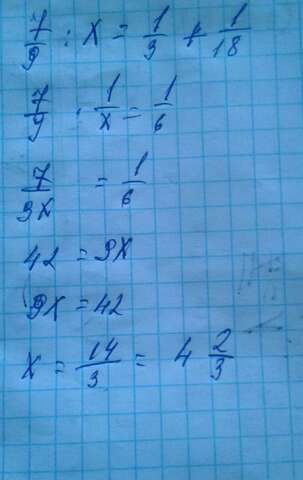 7/9 : x = 1/9 + 1/18
7/9 · 1/x = 1/6
7/9x = 1/6
42 = 9x
9x = 42
x = 14/3 = 4 2/3